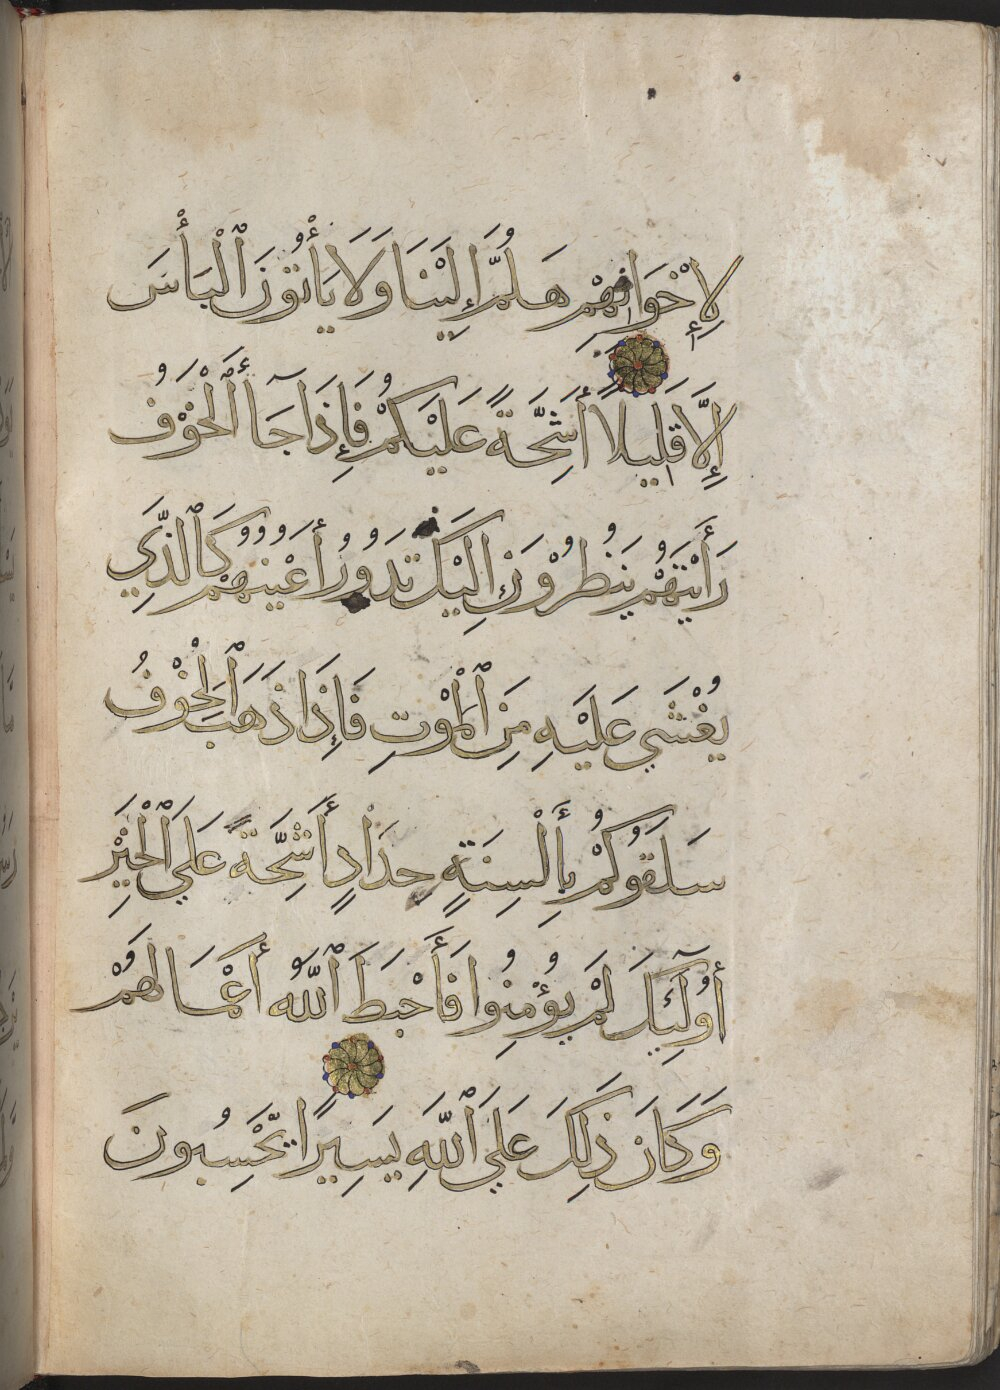 لِإِخْوَانِهِمْ هَلُمَّ إِلَيْنَا وَلَا يَأْتُونَ ٱلْبَأْسَ
إِلَّا قَلِيلًا أَشِحَّةً عَلَيْكُمْ فَإِذَا جَآءَ ٱلْخَوْفُ
رَأَيْتَهُمْ يَنظُرُونَ إِلَيْكَ تَدُورُ أَعْيُنُهُمْ كَٱلَّذِي
يُغْشَي عَلَيْهِ مِنَ ٱلْمَوْتِ فَإِذَا ذَهَبَ ٱلْخَوْفُ
سَلَقُوكُمْ بِأَلْسِنَةٍ حِدَادٍ أَشِحَّةً عَلَي ٱلْخَيْرِ
أُوْلَٰٓئِكَ لَمْ يُؤْمِنُوا فَأَحْبَطَ ٱللَّهُ أَعْمَالَهُمْ
وَكَانَ ذَلِكَ عَلَي ٱللَّهِ يَسِيرًا يَحْسِبُونَ